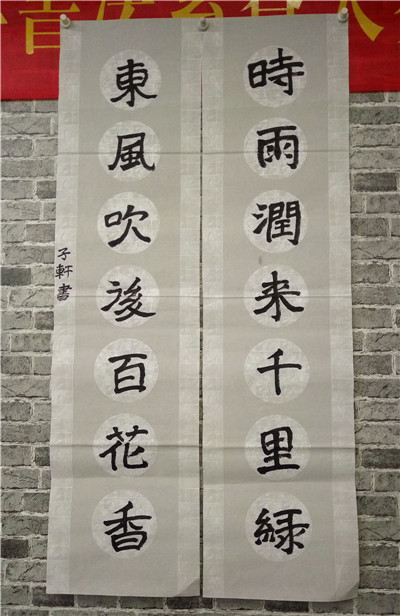 時雨潤来千里緑
東風吹後百花香
子軒書